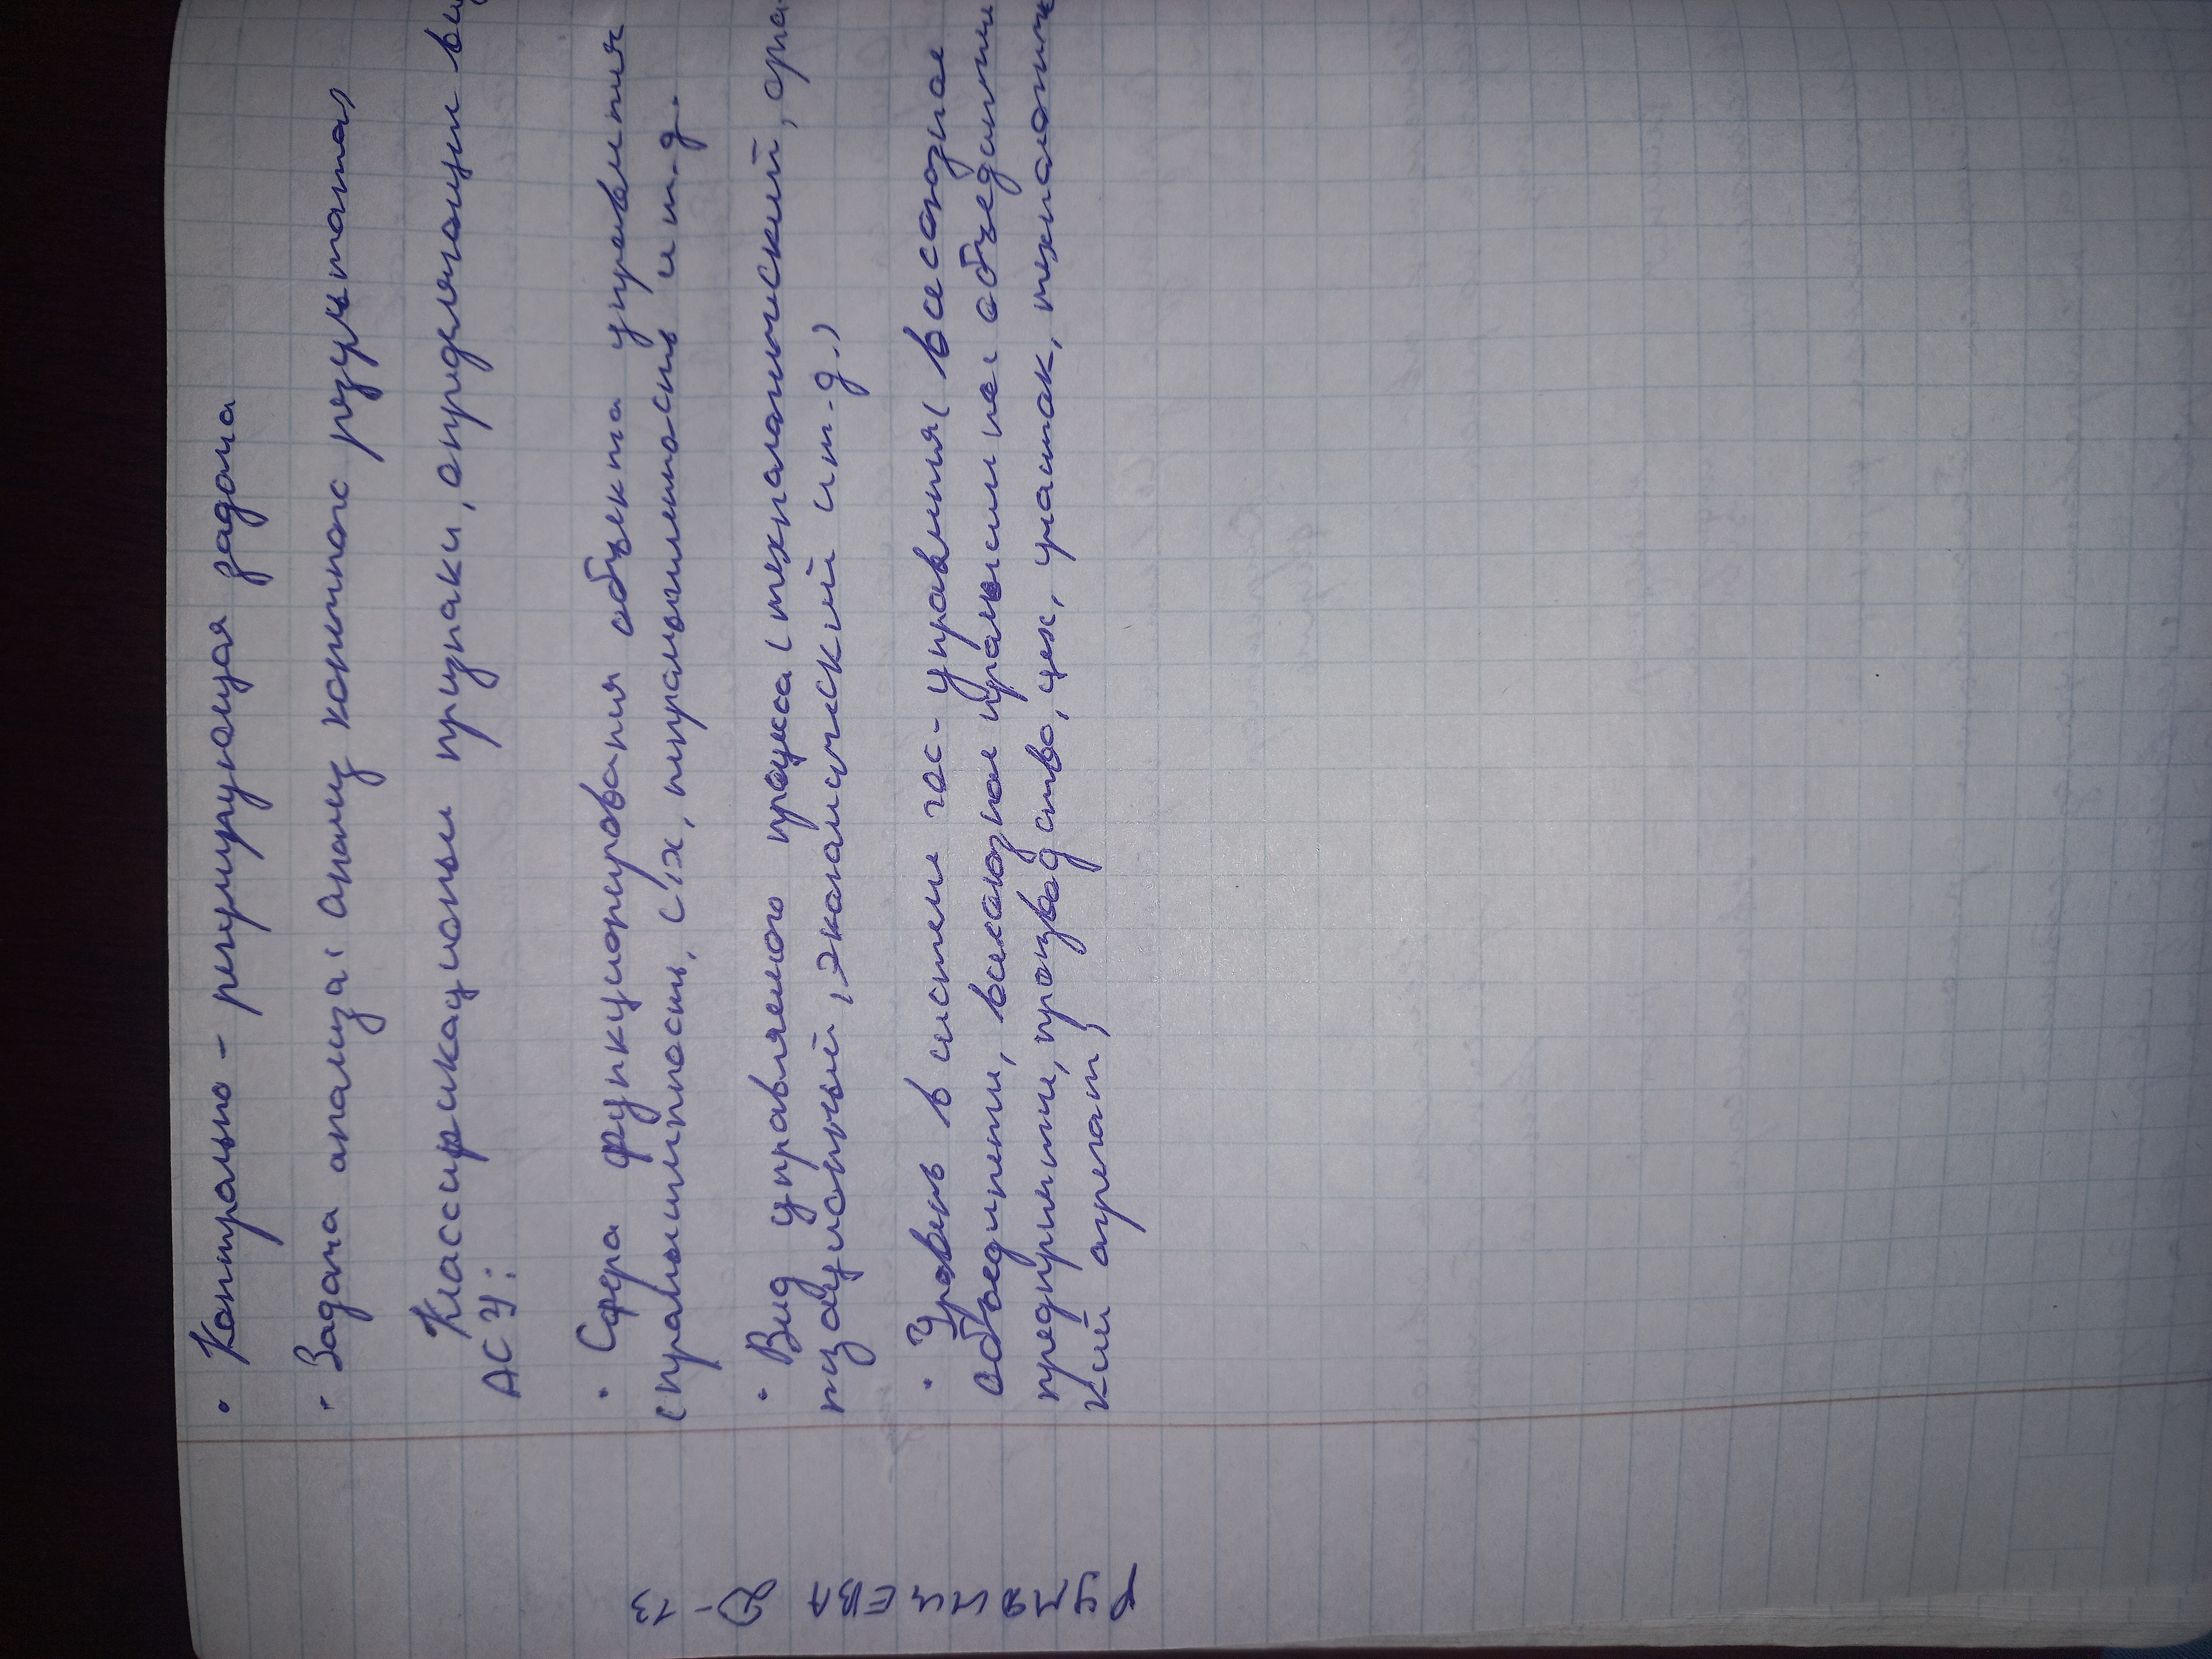 • Контрольно - регулирующая задача
• Задача анализа: анализ конечного результата)
Классификационые признаки, определяющии ви
АСУ:
• Сфера функционирования объекта управления
(промышленность, с/х, непромышленность и т.д.
• Вид управляемого процесса (технологический, орга
низационный, экономический и т.д.)
• Уровень в системе гос-управления (всесоюзное
объединение, всесоюзное промышленное объединение
предприятие, производство, цех, участок, технологичес
кий агрегат)